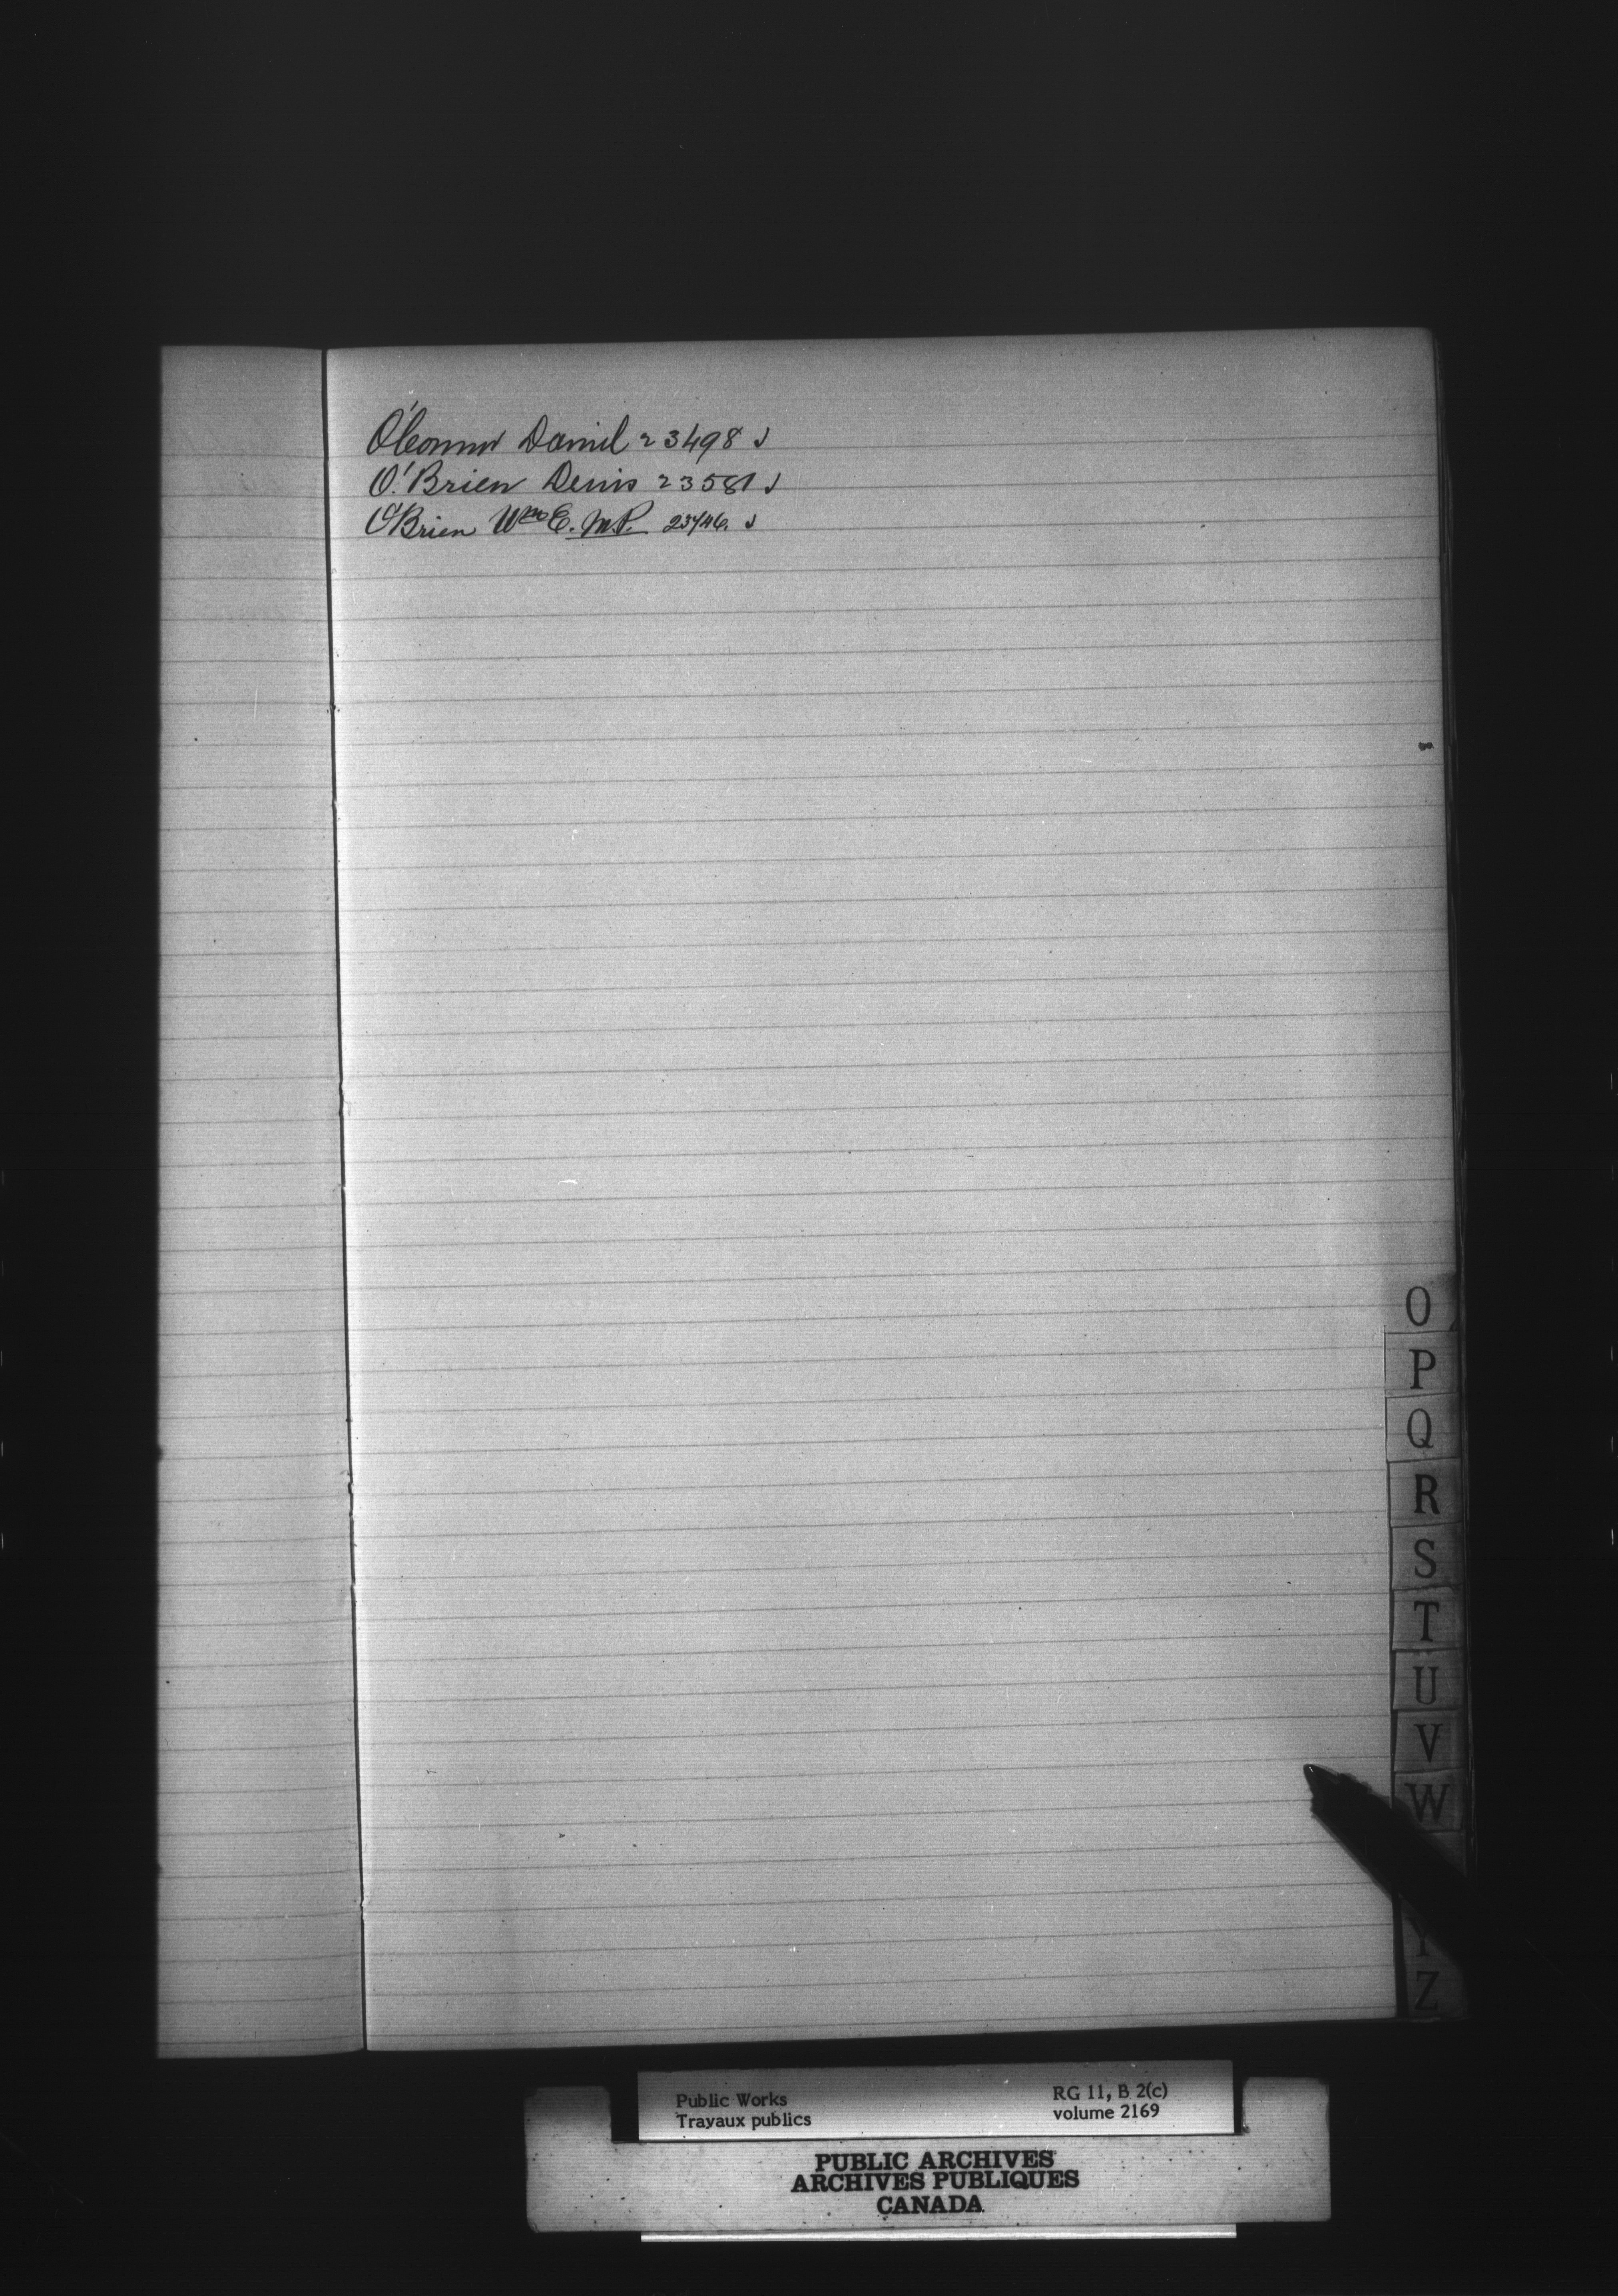 O'Connor Daniel 23498 √
O'Brien Denis 23581 √
O'Brien Wm E. M.P. 23746. √
O
P
Q
R
S
T
U
V
W
Y
Z
Public Works
Travaux publics
RG 11, B 2(c)
volume 2169
PUBLIC ARCHIVES
ARCHIVES PUBLIQUES
CANADA